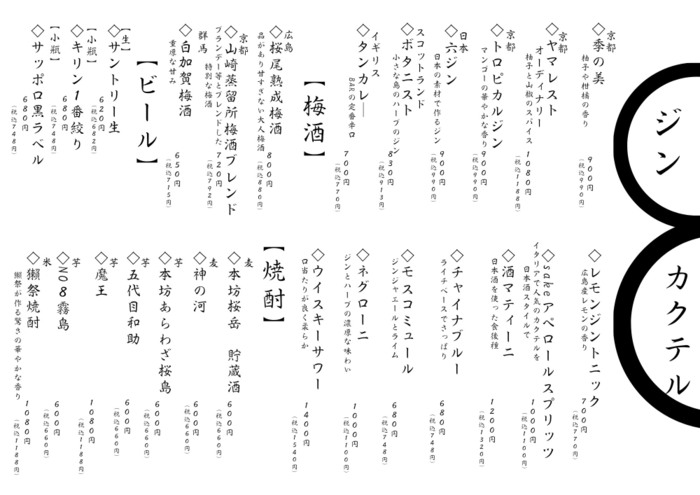 ジン
京都
◇季の美
柚子や柑橘の香り
900円
（税込990円）
京都
◇ヤマレスト
オーディナリー
柚子と山椒のスパイス
1080円
（税込1188円）
京都
◇トロピカルジン
マンゴーの華やかな香り
900円
（税込990円）
日本
◇六ジン
日本の素材で作るジン
900円
（税込990円）
スコットランド
◇ボタニスト
小さな島のハーブのジン
830円
（税込913円）
イギリス
◇タンカレー
BARの定番辛口
700円
（税込770円）
【梅酒】
広島
◇桜尾熟成梅酒
品があり甘すぎない大人梅酒
800円
（税込880円）
◇山崎蒸留所梅酒ブレンド
ブランデー等とブレンドした
特別な梅酒
720円
（税込792円）
群馬
◇白加賀梅酒
重厚な甘み
650円
（税込715円）
【ビール】
【生】
◇サントリー生
620円
（税込682円）
【小瓶】
◇キリン1番絞り
680円
（税込748円）
【小瓶】
◇サッポロ黒ラベル
680円
（税込748円）
カクテル
◇レモンジントニック
広島産レモンの香り
700円
（税込770円）
◇sakeアペロールスプリッツ
イタリアで人気のカクテルを
日本酒スタイルで
1000円
（税込1100円）
◇酒マティーニ
日本酒を使った食後種
1200円
（税込1320円）
◇チャイナブルー
ライチベースでさっぱり
680円
（税込748円）
◇モスコミュール
ジンジャエールとライム
680円
（税込748円）
◇ネグローニ
ジンとハーブの濃厚な味わい
1000円
（税込1100円）
◇ウイスキーサワー
口当たりが良く柔らか
1400円
（税込1540円）
【焼酎】
麦
◇本坊桜岳　貯蔵酒
600円
（税込660円）
麦
◇神の河
600円
（税込660円）
芋
◇本坊あらわざ桜島
600円
（税込660円）
芋
◇五代目和助
600円
（税込660円）
芋
◇魔王
1080円
（税込1188円）
芋
◇NO8霧島
600円
（税込660円）
米
◇獺祭焼酎
獺祭が作る驚きの華やかな香り
1080円
（税込1188円）